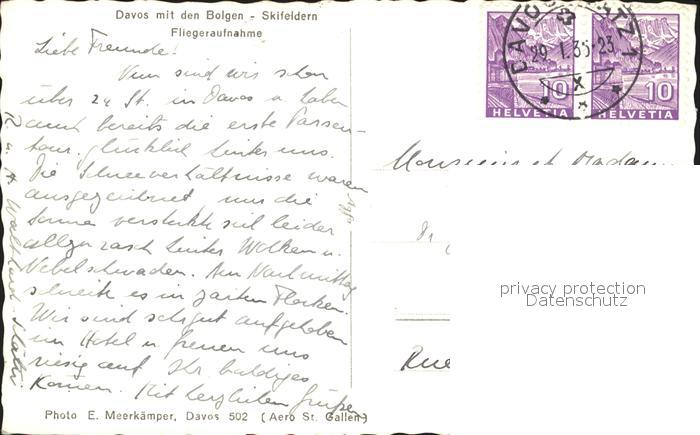 Davos mit den Bolgen - Skifeldern
Fliegeraufnahme
Liebe Freunde!
Nun sind wir schon
über 24 St. in Davos u. haben
auch bereits die erste Parsen-
tour glücklich hinter uns.
Die Schneeverhältnisse waren
ausgezeichnet, nur die
Sonne versteckte sich leider
allzu rasch hinter Wolken u.
Nebelschwaden. Am Nachmittag
schneite es in zarten Flocken.
Wir sind sehr gut aufgehoben
im Hotel u. freuen uns
riesig auf Ihr baldiges
Kommen. Mit herzlichen Grüßen
Photo E. Meerkämper, Davos 502 (Aero St. Gallen)
DAVOS PLATZ 1
29. I. 35-23
X
10
HELVETIA
10
HELVETIA
Monsieur et Madame
Rue
privacy protection
Datenschutz